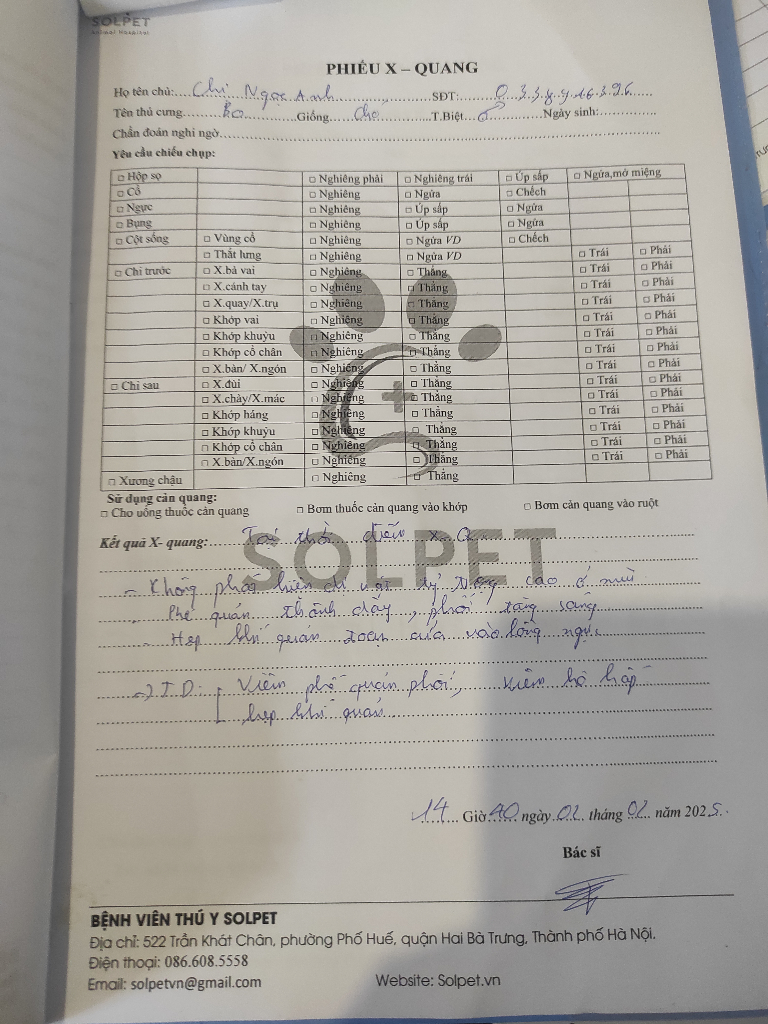 SOLPET
Animal Hospital
PHIẾU X – QUANG
Họ tên chủ: Chị Ngọc Anh SĐT:
Tên thú cưng Bo Giống Chó T.Biệt ♂ Ngày sinh:
Chẩn đoán nghi ngờ
Yêu cầu chiếu chụp:
□ Hộp sọ □ Nghiêng phải □ Nghiêng trái □ Úp sấp □ Ngửa,mở miệng
□ Cổ □ Nghiêng □ Ngửa □ Chếch
□ Ngực □ Nghiêng □ Úp sấp □ Ngửa
□ Bụng □ Nghiêng □ Úp sấp □ Ngửa
□ Cột sống □ Vùng cổ □ Nghiêng □ Ngửa VD □ Chếch
□ Thắt lưng □ Nghiêng □ Ngửa VD □ Trái □ Phải
□ Chi trước □ X.bả vai □ Nghiêng □ Thẳng □ Trái □ Phải
□ X.cánh tay □ Nghiêng □ Thẳng □ Trái □ Phải
□ X.quay/X.trụ □ Nghiêng □ Thẳng □ Trái □ Phải
□ Khớp vai □ Nghiêng □ Thẳng □ Trái □ Phải
□ Khớp khuỷu □ Nghiêng □ Thẳng □ Trái □ Phải
□ Khớp cổ chân □ Nghiêng □ Thẳng □ Trái □ Phải
□ X.bàn/ X.ngón □ Nghiêng □ Thẳng □ Trái □ Phải
□ Chi sau □ X.đùi □ Nghiêng □ Thẳng □ Trái □ Phải
□ X.chày/X.mác □ Nghiêng □ Thẳng □ Trái □ Phải
□ Khớp háng □ Nghiêng □ Thẳng □ Trái □ Phải
□ Khớp khuỷu □ Nghiêng □ Thẳng □ Trái □ Phải
□ Khớp cổ chân □ Nghiêng □ Thẳng □ Trái □ Phải
□ X.bàn/X.ngón □ Nghiêng □ Thẳng
□ Xương chậu □ Nghiêng □ Thẳng
Sử dụng cản quang:
□ Cho uống thuốc cản quang □ Bơm thuốc cản quang vào khớp □ Bơm cản quang vào ruột
Kết quả X- quang: Tại thời điểm x Q
SOLPET
- Không phát hiện dị vật tỷ trọng cao ở mũi
- Phế quản thành dày, phổi tăng sáng
- Hẹp khí quản đoạn cửa vào lồng ngực
=> TD: Viêm phế quản phổi, viêm hô hấp
hẹp khí quản
14 Giờ 40 ngày 02 tháng 02 năm 2025.
Bác sĩ
BỆNH VIỆN THÚ Y SOLPET
Địa chỉ: 522 Trần Khát Chân, phường Phố Huế, quận Hai Bà Trưng, Thành phố Hà Nội.
Điện thoại: 086.608.5558
Email: solpetvn@gmail.com Website: Solpet.vn